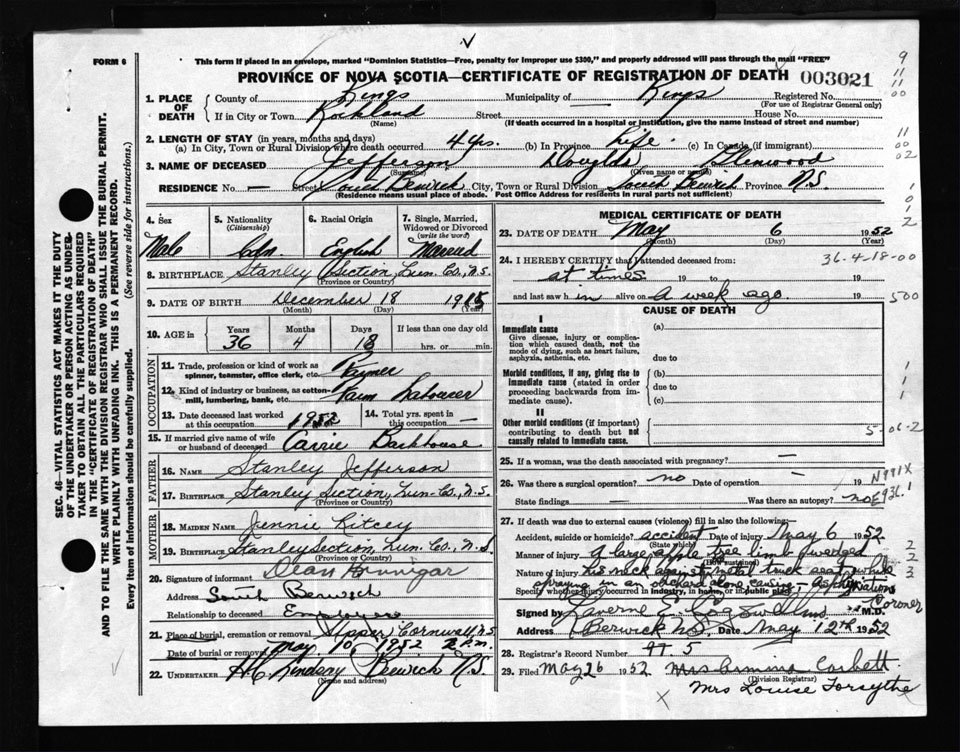 FORM 6
This form if placed in an envelope, marked "Dominion Statistics—Free, penalty for improper use $300," and properly addressed will pass through the mail "FREE"
PROVINCE OF NOVA SCOTIA—CERTIFICATE OF REGISTRATION OF DEATH 003021
9
11
11
00
1. PLACE OF DEATH County of Kings Municipality of Kings Registered No.
(For use of Registrar General only)
If in City or Town Rockland Street House No.
(Name) (If death occurred in a hospital or institution, give the name instead of street and number)
2. LENGTH OF STAY (in years, months and days)
(a) In City, Town or Rural Division where death occurred 4 yrs. (b) In Province Life (c) In Canada (if immigrant)
11
00
02
3. NAME OF DECEASED Jefferson Douglas Glenwood
(Surname) (Given name or names)
RESIDENCE No. — Street South Berwick City, Town or Rural Division South Berwick Province N.S.
(Residence means usual place of abode. Post Office Address for residents in rural parts not sufficient)
1
0
0
2
4. Sex Male
5. Nationality (Citizenship) Cdn.
6. Racial Origin English
7. Single, Married, Widowed or Divorced (write the word) Married
8. BIRTHPLACE Stanley Section, Lun. Co., N.S.
(Province or Country)
9. DATE OF BIRTH December 18 1915
(Month) (Day) (Year)
10. AGE in Years Months Days If less than one day old
36 4 18 hrs. or min.
OCCUPATION
11. Trade, profession or kind of work as spinner, teamster, office clerk, etc. Farmer
12. Kind of industry or business, as cotton-mill, lumbering, bank, etc. Farm Labourer
13. Date deceased last worked at this occupation 1952 14. Total yrs. spent in this occupation —
15. If married give name of wife or husband of deceased Carrie Barkhouse
FATHER
16. NAME Stanley Jefferson
17. BIRTHPLACE Stanley Section, Lun. Co., N.S.
(Province or Country)
MOTHER
18. MAIDEN NAME Jennie Ritcey
19. BIRTHPLACE Stanley Section, Lun. Co., N.S.
(Province or Country)
20. Signature of informant Dean
Address South Berwick
Relationship to deceased
21. Place of burial, cremation or removal Upper Cornwall, N.S.
Date of burial or removal May 10, 1952 2 P.M.
22. UNDERTAKER Berwick N.S.
(Name and address)
MEDICAL CERTIFICATE OF DEATH
23. DATE OF DEATH May 6 1952
(Month) (Day) (Year)
24. I HEREBY CERTIFY that I attended deceased from: 36-4-18-00
at times 19 to 19
and last saw him alive on a week ago 19 500
CAUSE OF DEATH
I
Immediate cause (a)
Give disease, injury or complication which caused death, not the mode of dying, such as heart failure, asphyxia, asthenia, etc.
due to
Morbid conditions, if any, giving rise to immediate cause (stated in order proceeding backwards from immediate cause). (b)
due to
(c)
1
1
1
II
Other morbid conditions (if important) contributing to death but not causally related to immediate cause.
5-06-2
25. If a woman, was the death associated with pregnancy? —
26. Was there a surgical operation? no Date of operation — 19 N991X
State findings — Was there an autopsy? no E936.1
27. If death was due to external causes (violence) fill in also the following—
Accident, suicide or homicide? accident Date of injury May 6 1952
(State which)
Manner of injury a large apple tree limb wedged
(How sustained)
Nature of injury his neck against metal truck seat while
spraying in an orchard alone causing — asphyxiation
Specify whether injury occurred in industry, in home, or in public place
2
2
3
Signed by Laverne E. Cogswell M.D. Coroner
Address Berwick N.S. Date May 12th 1952
28. Registrar's Record Number 5
29. Filed May 26 1952 Mrs Corbett
(Division Registrar)
Mrs Louise Forsythe
SEC. 46—VITAL STATISTICS ACT MAKES IT THE DUTY OF THE UNDERTAKER OR PERSON ACTING AS UNDERTAKER TO OBTAIN ALL THE PARTICULARS REQUIRED IN THE "CERTIFICATE OF REGISTRATION OF DEATH" AND TO FILE THE SAME WITH THE DIVISION REGISTRAR WHO SHALL ISSUE THE BURIAL PERMIT.
WRITE PLAINLY WITH UNFADING INK. THIS IS A PERMANENT RECORD.
Every item of information should be carefully supplied. (See reverse side for instructions.)